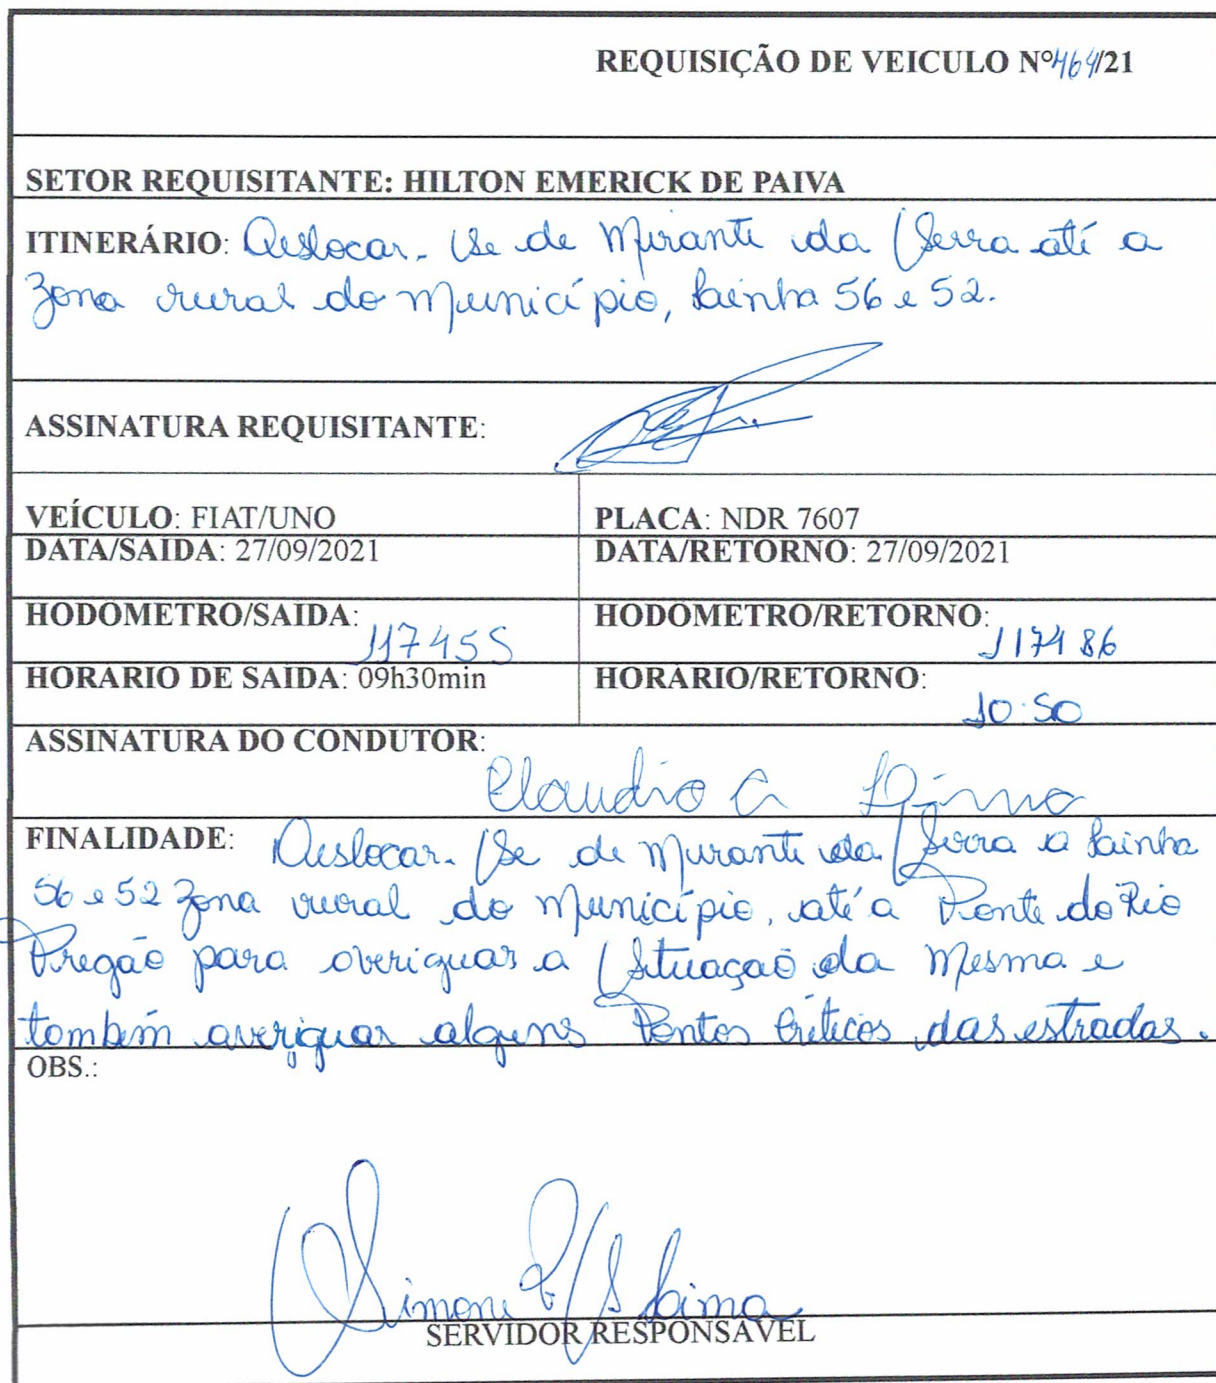 REQUISIÇÃO DE VEICULO Nº464/21
SETOR REQUISITANTE: HILTON EMERICK DE PAIVA
ITINERÁRIO: Deslocar-se de Mirante da Serra até a
Zona rural do município, Lainha 56 e 52.
ASSINATURA REQUISITANTE:
VEÍCULO: FIAT/UNO PLACA: NDR 7607
DATA/SAIDA: 27/09/2021 DATA/RETORNO: 27/09/2021
HODOMETRO/SAIDA: HODOMETRO/RETORNO:
117455 117486
HORARIO DE SAIDA: 09h30min HORARIO/RETORNO:
10:50
ASSINATURA DO CONDUTOR:
Claudio
FINALIDADE: Deslocar-se de Mirante da Serra a Lainha
56 e 52 Zona rural do município, até a Ponte do Rio
Pregão para averiguar a Situação da Mesma e
também averiguar alguns Pontos Críticos das estradas.
OBS.:
Simone Lima
SERVIDOR RESPONSAVEL